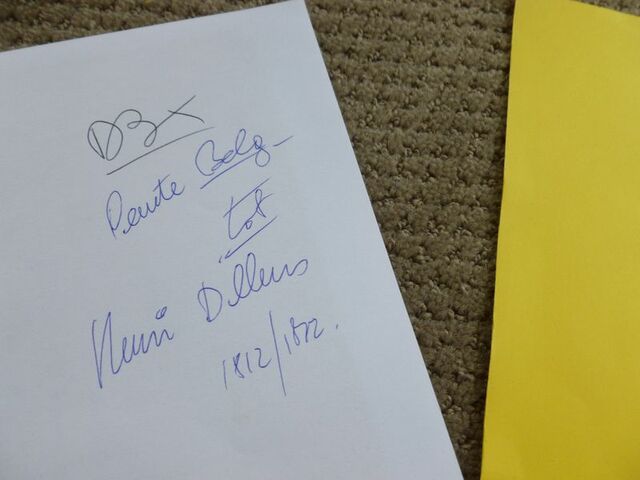 DBx
Peintre Belg
tot
Henri Dillens
1812/1872.